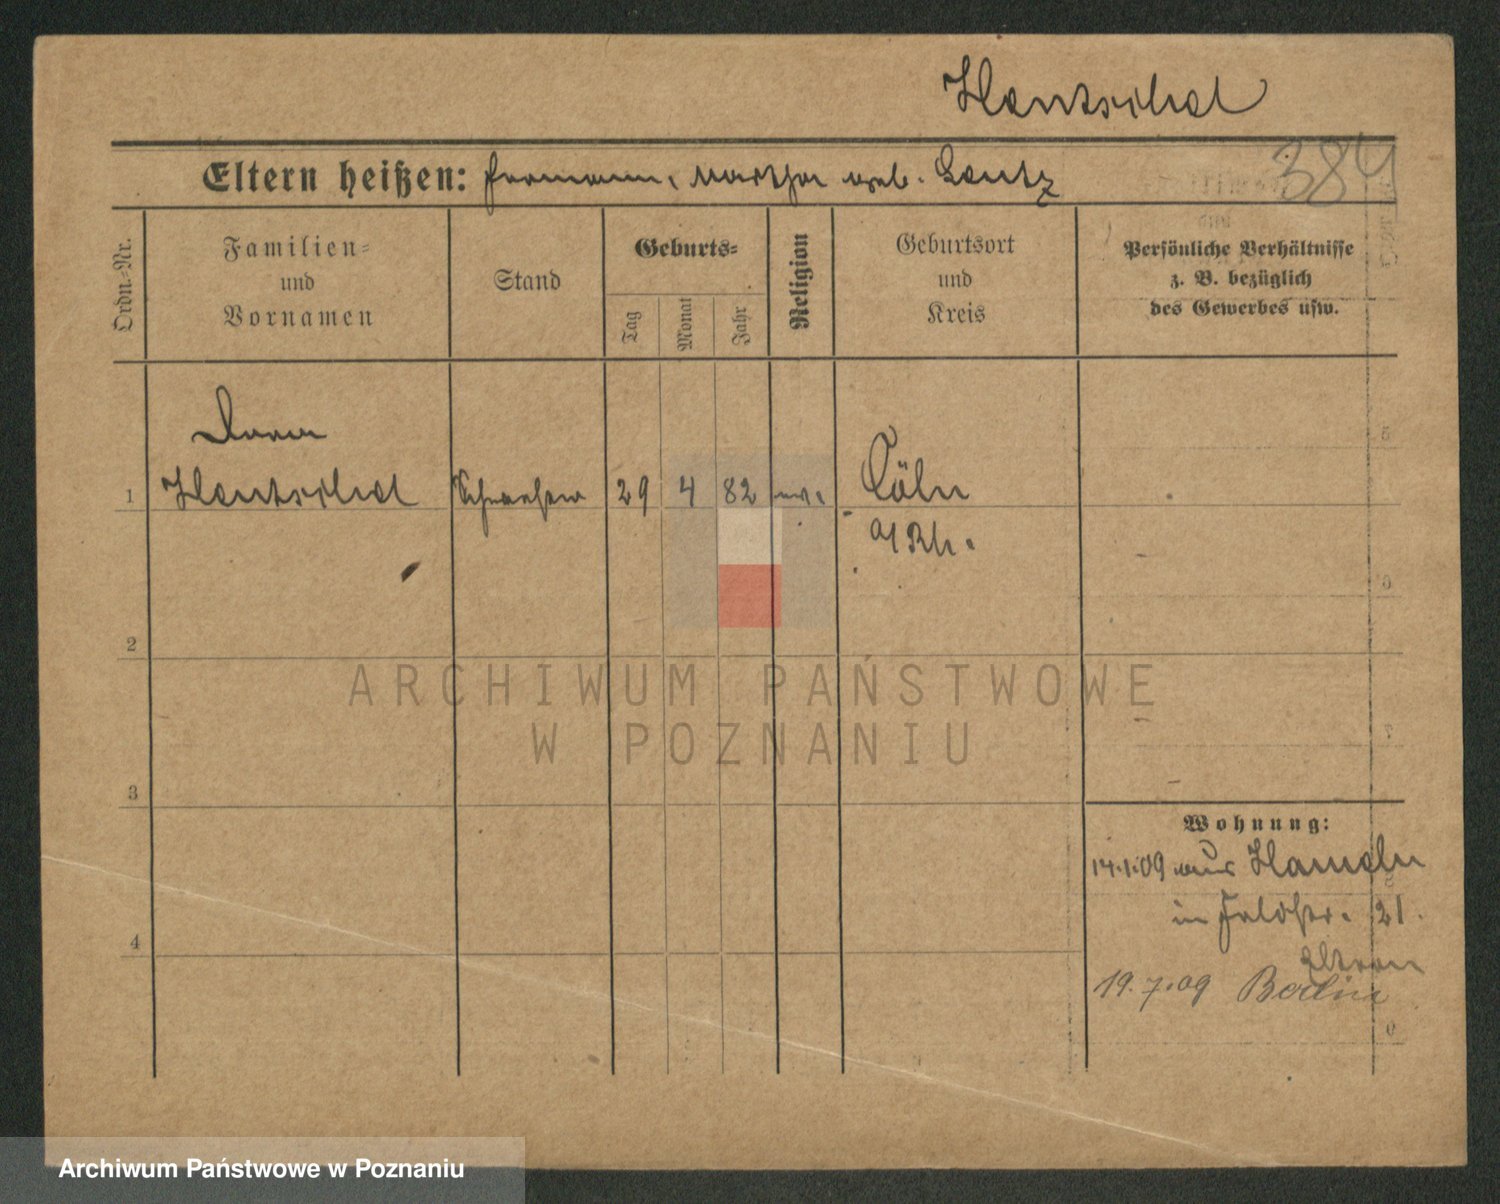 Hentschel
384
Eltern heißen: Hermann, Martha geb. Lentz
Ordn.-Nr.
Familien-
und
Vornamen
Stand
Geburts-
Tag
Monat
Jahr
Religion
Geburtsort
und
Kreis
Persönliche Verhältnisse
z. B. bezüglich
des Gewerbes usw.
1
Hentschel
29
4
82
ev.
Cöln
a/Rh.
2
3
4
ARCHIWUM PAŃSTWOWE
W POZNANIU
Wohnung:
14.1.09 aus Hameln
in Feldstr. 21.
Eltern
19.7.09 Berlin
Archiwum Państwowe w Poznaniu